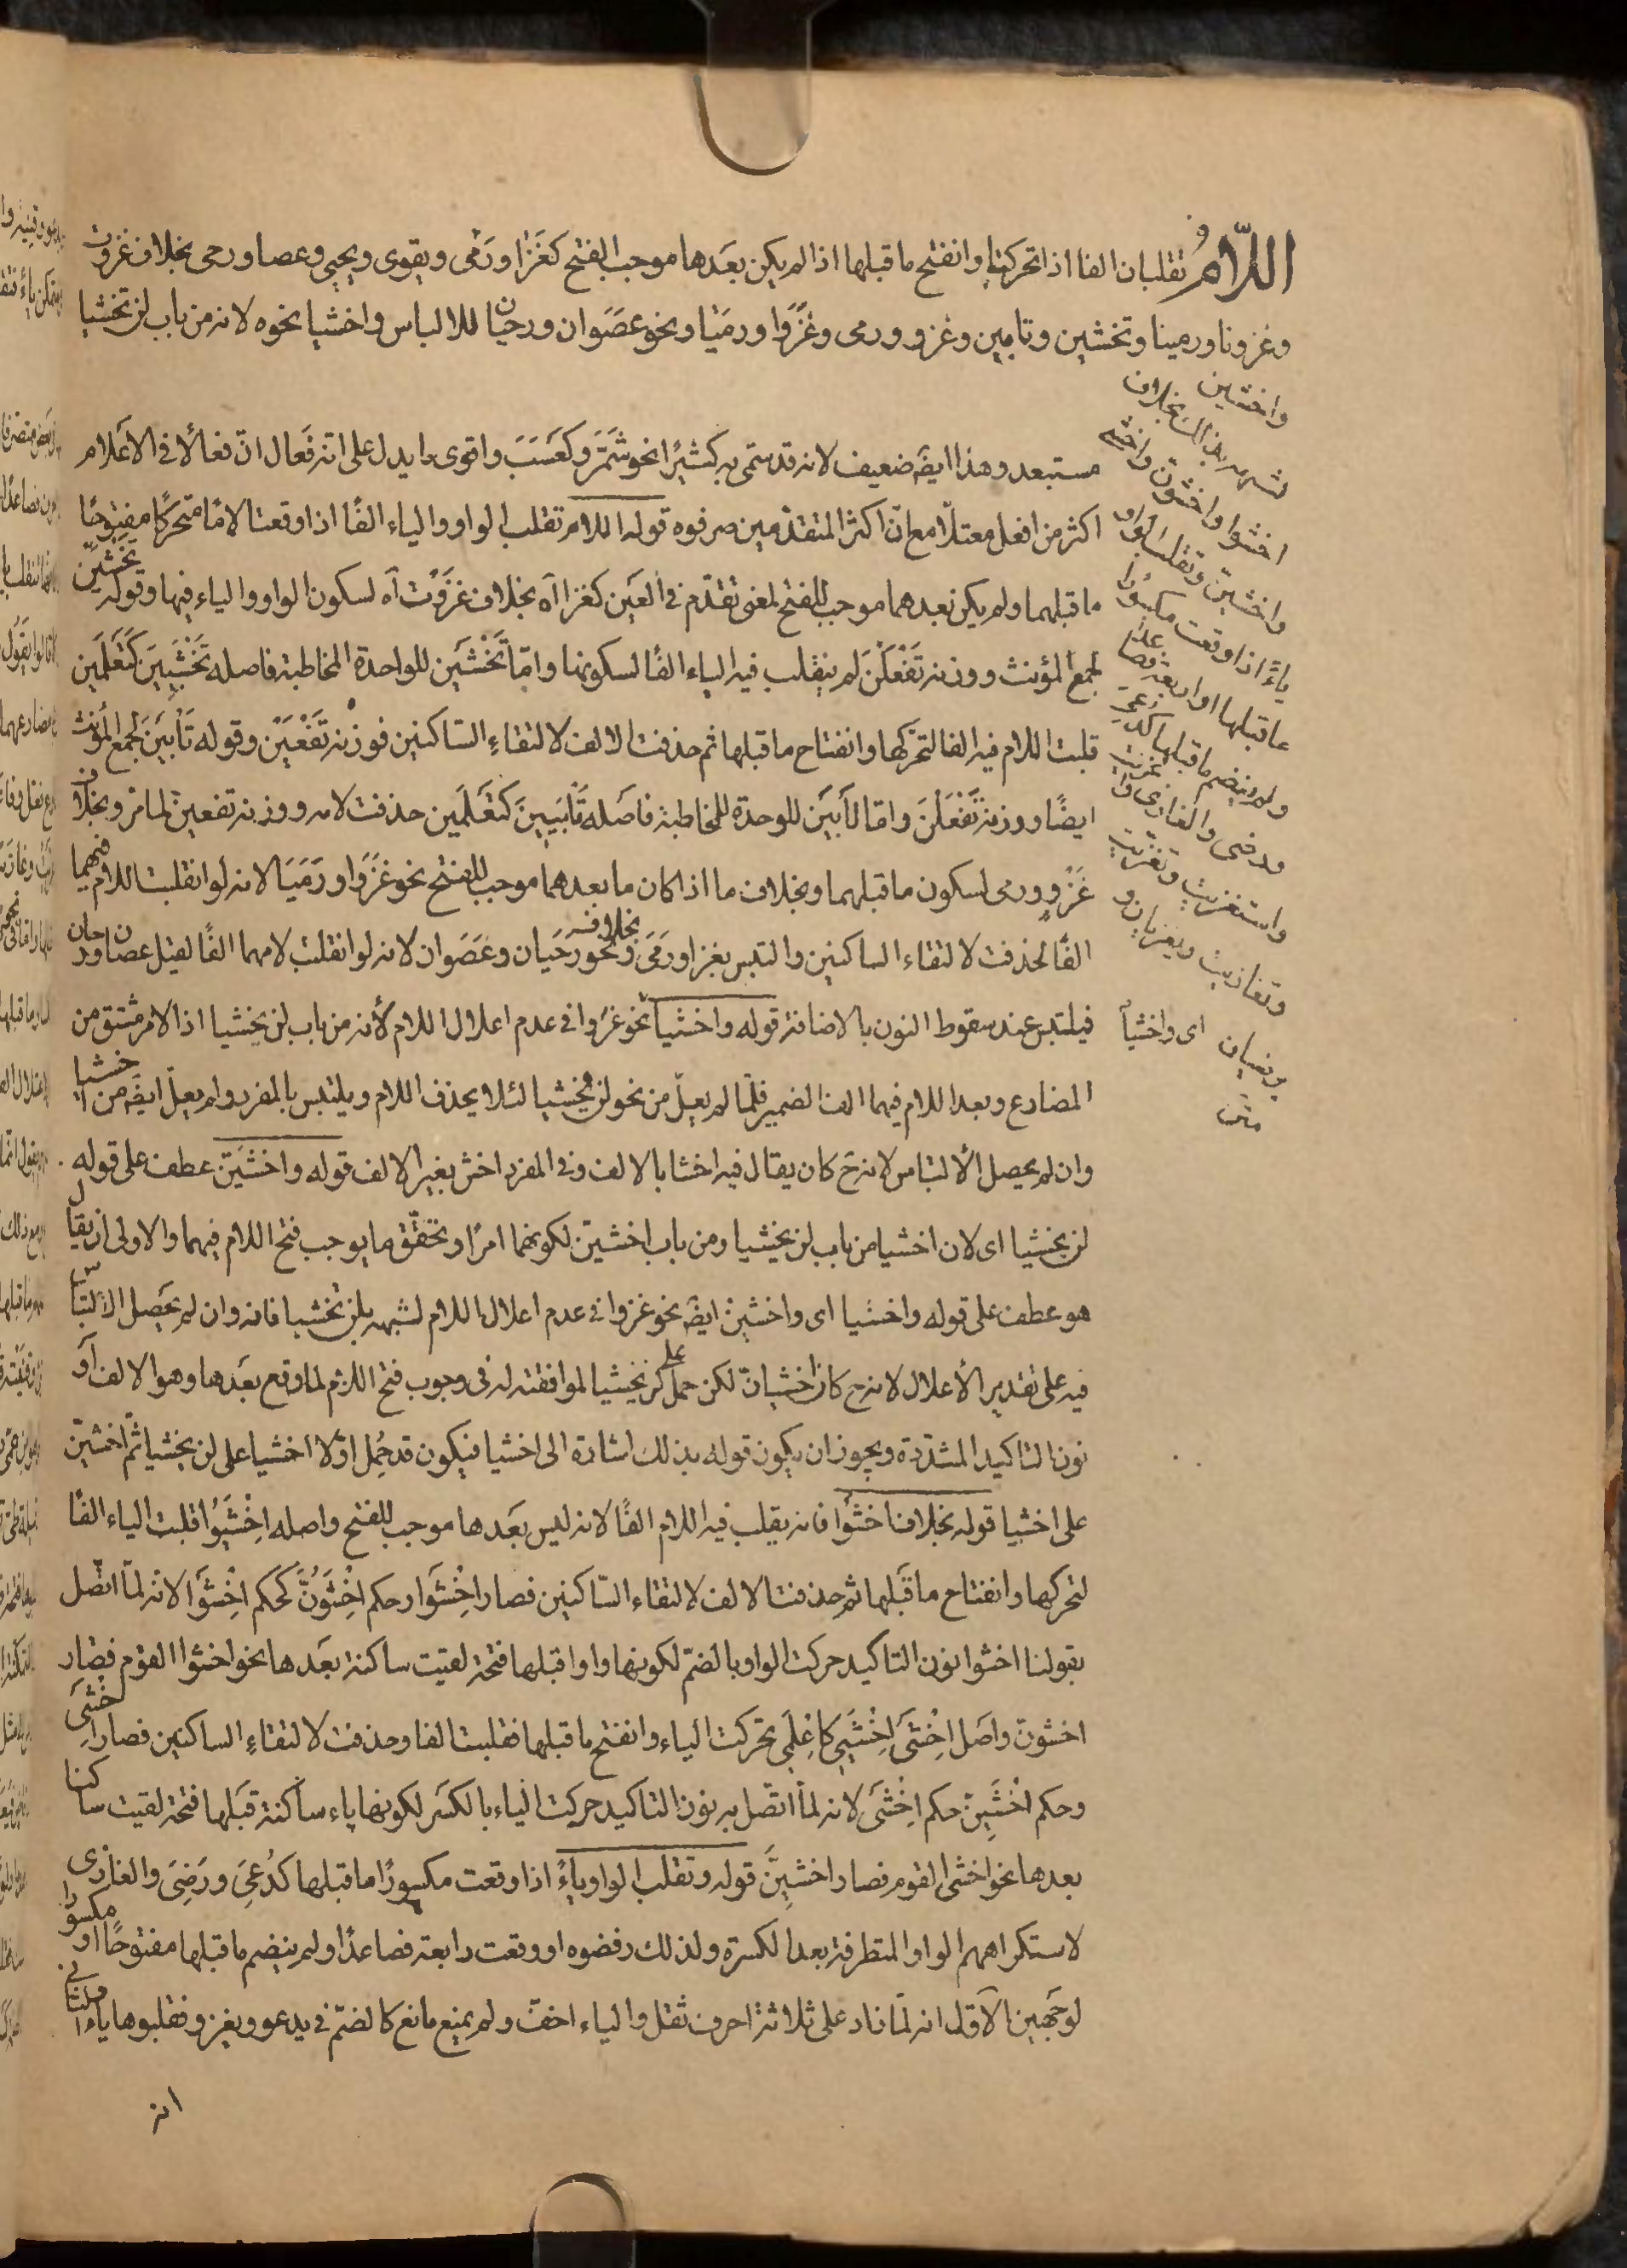 اللّامُ تقلبان الفا اذا تحركتا وانفتح ما قبلها اذا لم يكن بعدها موجب الفتح كغَزَا ورَمَى ويقوى ويحيى وعصا ورحى بخلاف غزوت
وغزونا ورمينا وتخشين وتابين وغزو ورمى وغَزَوَا ورمَيَا ونحو عصَوان ورحيان للالباس واخشيا نحوه لانه من باب لن تخشيا
واخشين
لشبهه بذلك بخلاف
اخشوا واخشون واخشى
واخشين وتقلب الواو
ياءً اذا وقعت مكسورا
ما قبلها او رابعة فصاعدا
ولم ينضم ما قبلها كدعى
ورضى والغازى واغزيت
واستغزيت وتغزيت
وتغازيت ويغزيان و
يرضيان
متن
اى واخشياً
مستبعد وهذا ايضَ ضعيف لانه قد سمّى به كثيرًا نحو شَمَّرَ وكعَسَبَ واقوى ما يدل على انه فَعال انّ فعالًا فى الاعلام
اكثر من افعل معتلًا مع انّ اكثر المتقدّمين صرفوه قوله اللام تقلب الواو والياء الفًا اذا وقعتا لامًا متحركًا مفتوحًا
ما قبلهما ولم يكن بعدهما موجب للفتح لمعنى تقدّم فى العَين كغزا آه بخلاف غزَوْت آه لسكون الواو والياء فيها وقوله يخشَين
لجمع المؤنث ووزنه تَفْعَلْنَ لم ينقلب فيه الياء الفًا لسكونها وامّا تَخْشَين للواحدة المخاطبة فاصله تَخْشَيِينَ كَتَعْلَمَين
قلبت اللام فيه الفا لتحرّكها وانفتاح ما قبلها ثم حذفت الالف لالتقاءِ السّاكنين فوزنه تَفْعَيْن وقوله تَأْبَينَ لجمع المؤنث
ايضًا ووزنه تَفْعَلْنَ وامّا تَأبَين للوحدة المخاطبة فاصَله تَأْبَيِينَ كَتَعْلَمين حذفت لامه ووزنه تفعين لما مرّ وبخلاف
غَزْوٍ ورمى لسكون ما قبلهما وبخلاف ما اذا كان ما بعدهما موجب للفتح نحو غزَوَا ورَمَيَا لانه لو انقلبت اللام فيهما
الفًا لحذفت لالتقاء الساكنين والتبس بغزا ورَمَى وبخلاف نحو رحَيان وعَصَوان لانه لو انقلبت لامهما الفًا لقيل عصان ورحان
فيلتبس عند سقوط النون بالاضافة قوله واخشَياً نحو غزَوا فى عدم اعلال اللام لأنه من باب لن يخشيا اذ الامر مشتق من
المضارع وبعد اللام فيهما الف الضمير فلمّا لم يعلّ من نحو لن يخشيا لئلا يحذف اللام ويلتبس بالمفرد ولم يعلّ ايضَ من اخشيا
وان لم يحصل الألتباس لانه حَ كان يقال فيه اخشا بالالف وفى المفرد اخش بغير الالف قوله واخشَيَنّ عطف على قوله
لن يخشيا اى لان اخشيا من باب لن يخشيا ومن باب اخشينّ لكونهما امرًا وتحقّق ما يوجب فتح اللام فيهما والاولى ان يقال
هو عطف على قوله واخشَيا اى واخشينّ ايضَ نحو غزوا فى عدم اعلال اللام لشبهه بلن تخشيا فانه وان لم يحَصل الألتباس
فيه على تقدير الأعلال لانه ح كان اخشانّ لكن حمل على لن يخشيا لموافقته له فى وجوب فتح اللام لما وقع بعَدها وهو الالف او
نون التاكيد المشدّدة ويجوز ان يكون قوله بذلك اشارة الى اخشيا فيكون قد حُمِل اوّلا اخشيا على لن يخشيا ثمّ اخشينّ
على اخشيا قوله بخلاف اخشَوُا فانه يقلب فيه اللام الفًا لانه ليس بعَدها موجب للفتح واصله اِخْشَيُوا قلبت الياء الفًا
لتحركها وانفتاح ما قَبلها ثم حذفت الالف لالتقاء السّاكنين فصار اِخْشَوا وحكم اِخْشَوُنَّ كَحكم اِخْشَوا لانه لمّا اتصّل
بقولنا اخشوا نون التاكيد حركت الواو بالضمّ لكونها واوا قبلها فتحة لقيت ساكنة بعَدها نحو اخشوا القوم فصار
اخشونّ واصَل اِخْشَى اِخْشَيِى كاِعْلَمِى تحركت الياء وانفتح ما قبلها فقلبت الفا وحذفت لالتقاءِ الساكنين فصار اِخْشَى
وحكم اخْشَيِنّ حكم اِخْشَى لانه لمّا اتصّل به نون التاكيد حركت الياء بالكسَر لكونها ياء ساكنة قَبلها فتحة لقيت ساكنا
بعدها نحو اخشى القوم فصار اخشيِنَّ قوله وتقلب الواو ياءً اذا وقعت مكسورًا ما قبلها كدُعِىَ ورَضِىَ والغازى
لاستكراههم الواو المتطرفة بعد الكسرة ولذلك رفضوه او وقعت رابعة فصاعدًا ولم ينضم ما قبلها مفتوحًا او مكسورا
لوجَهين الاوّل انه لمّا زاد على ثلاثة احرف ثقل والياء اخفّ ولم يمنع مانع كالضمّ فى يدعو ويغزو فقلبوها ياء الثانى
انه